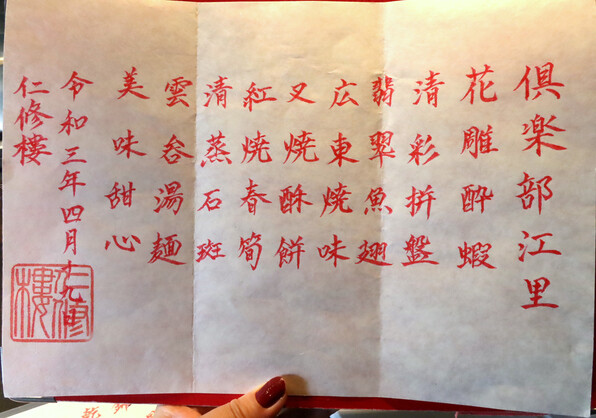 倶楽部江里
花雕酔蝦
清彩拼盤
翡翠魚翅
広東焼味
叉焼酥餅
紅焼春筍
清蒸石斑
雲呑湯麺
美味甜心
令和三年四月
仁修樓
仁修樓